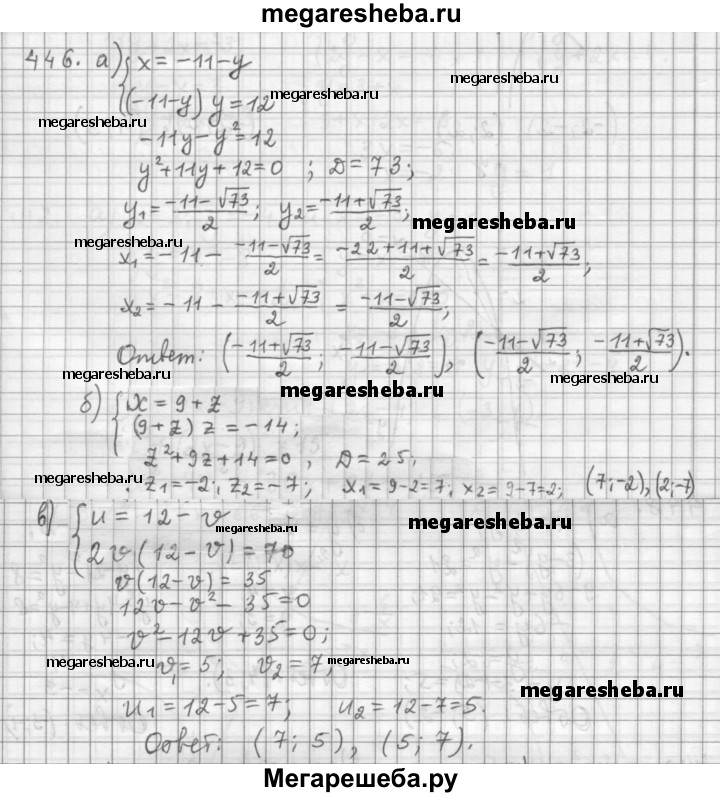 megaresheba.ru
446. а) { x = -11 - y
megaresheba.ru
(-11-y) y = 12
megaresheba.ru
megaresheba.ru
-11y - y² = 12
y² + 11y + 12 = 0 ; D = 73 ;
y₁ = (-11-√73)/2 ; y₂ = (-11+√73)/2 ;
megaresheba.ru
megaresheba.ru
x₁ = -11 - (-11-√73)/2 = (-22+11+√73)/2 = (-11+√73)/2 ;
x₂ = -11 - (-11+√73)/2 = (-11-√73)/2 ;
Ответ: ((-11+√73)/2 ; (-11-√73)/2), ((-11-√73)/2 ; (-11+√73)/2).
megaresheba.ru
megaresheba.ru
megaresheba.ru
б) { x = 9 + z
(9+z) z = -14 ;
z² + 9z + 14 = 0 , D = 25 ;
megaresheba.ru
z₁ = -2 ; z₂ = -7 ; x₁ = 9-2 = 7 ; x₂ = 9-7 = 2 ; (7; -2), (2; -7)
в) { u = 12 - v
megaresheba.ru
megaresheba.ru
2v(12-v) = 70
v(12-v) = 35
12v - v² - 35 = 0
v² - 12v + 35 = 0 ;
megaresheba.ru
v₁ = 5 ; v₂ = 7 ;
megaresheba.ru
megaresheba.ru
u₁ = 12-5 = 7 ; u₂ = 12-7 = 5.
Ответ: (7; 5), (5; 7).
Мегарешеба.ру